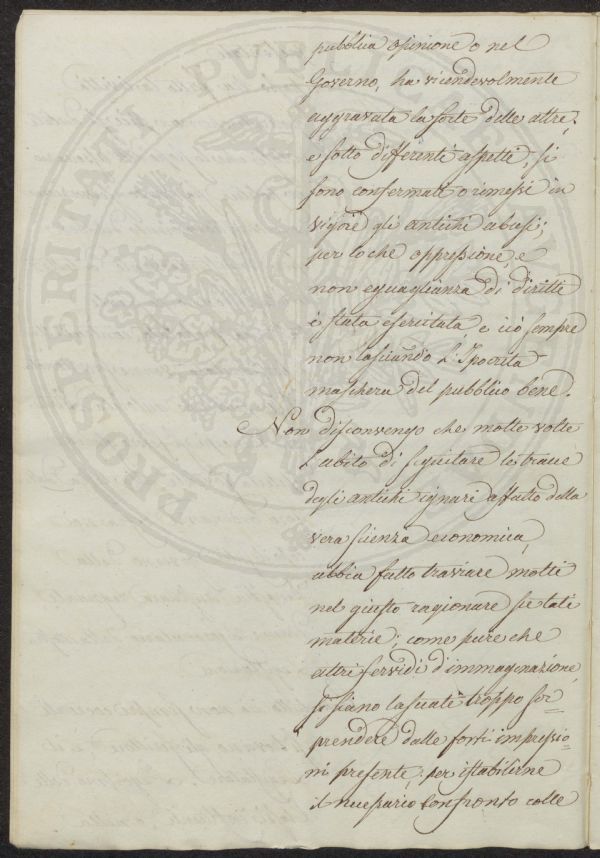 pubblica opinione o nel
Governo, ha vicendevolmente
aggravata la sorte delle altre;
e sotto differenti aspetti, si
sono confermati o rimessi in
vigore gli antichi abusi;
per lo che oppressione, e
non eguaglianza di diritti
è stata esercitata e ciò sempre
non lasciando l'Ipocrita
maschera del pubblico bene.
Non disconvengo che molte volte
l'abito di seguitare le tracce
degli antichi ignari affatto della
vera scienza economica,
abbia fatto traviare molti
nel giusto ragionare su tali
materie; come pure che
altri fervidi d'immaginazione,
si siano lasciati troppo sor=
prendere dalle forti impressio=
ni presenti, per istabilirne
il necessario Confronto colle
PROSPERITATI PUBL